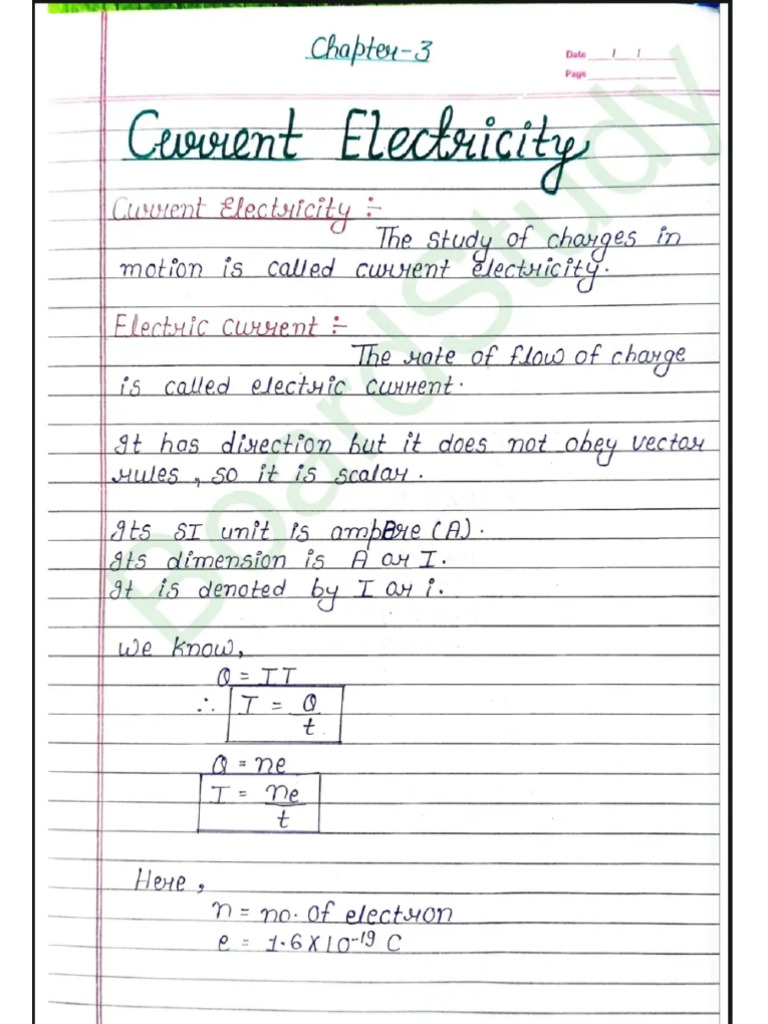 Chapter-3
Date / /
Page
Current Electricity
Current Electricity :-
The study of charges in
motion is called current electricity.
Electric current :-
The rate of flow of charge
is called electric current.
It has direction but it does not obey vector
rules, so it is scalar.
Its SI unit is ampere (A).
Its dimension is A or I.
It is denoted by I or i.
We know,
Q = IT
∴ I = Q/t
Q = ne
I = ne/t
Here,
n = no. of electron
e = 1.6 X 10⁻¹⁹ C
BoardStudy